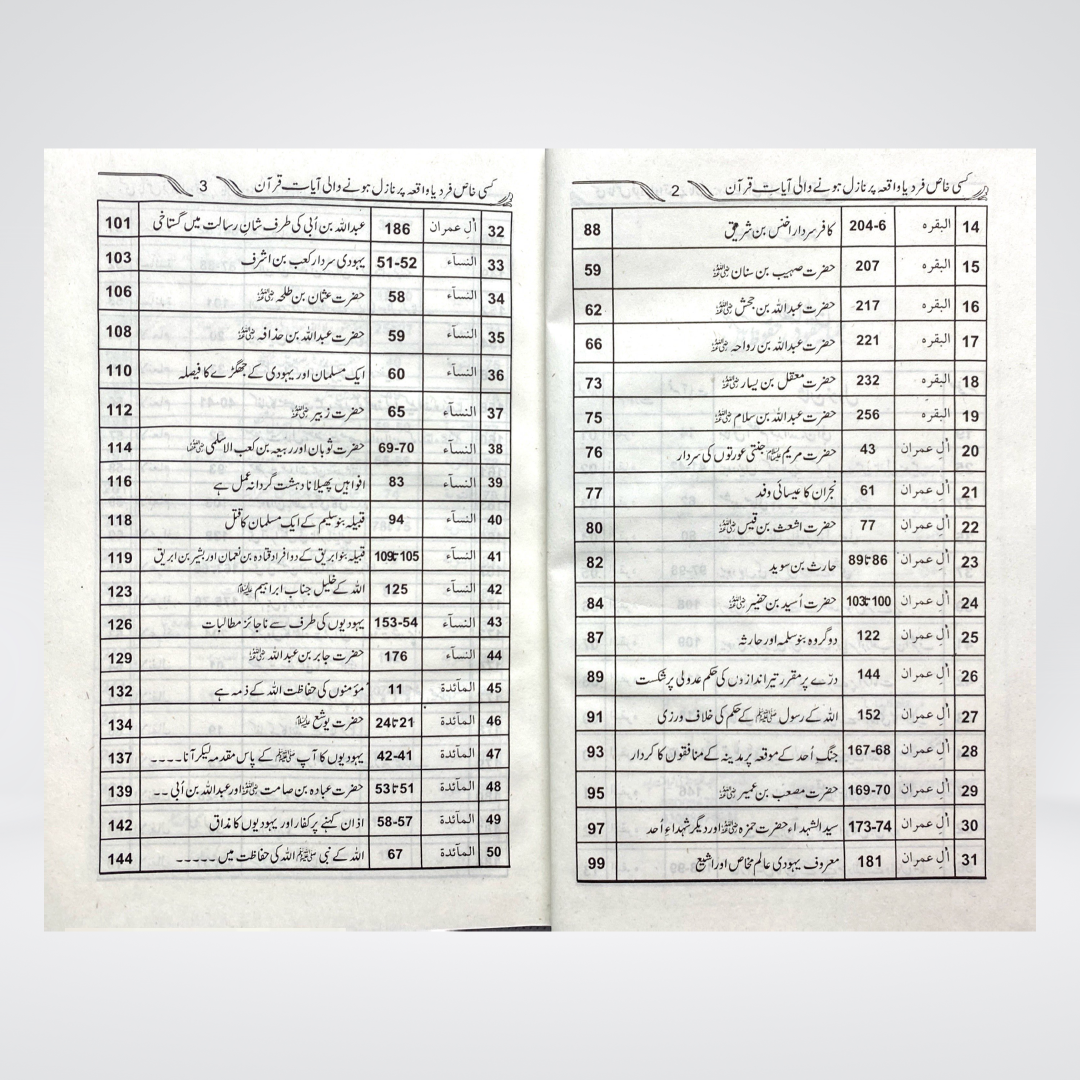 کسی خاص فرد یا واقعہ پر نازل ہونے والی آیات قرآن 2
14 البقرہ 204-6 کافر سردار اخنس بن شریق 88
15 البقرہ 207 حضرت صہیب بن سنان رضی اللہ عنہ 59
16 البقرہ 217 حضرت عبداللہ بن جحش رضی اللہ عنہ 62
17 البقرہ 221 حضرت عبداللہ بن رواحہ رضی اللہ عنہ 66
18 البقرہ 232 حضرت معقل بن یسار رضی اللہ عنہ 73
19 البقرہ 256 حضرت عبداللہ بن سلام رضی اللہ عنہ 75
20 اٰلِ عمران 43 حضرت مریم علیہا السلام جنتی عورتوں کی سردار 76
21 اٰلِ عمران 61 نجران کا عیسائی وفد 77
22 اٰلِ عمران 77 حضرت اشعث بن قیس رضی اللہ عنہ 80
23 اٰلِ عمران 86تا89 حارث بن سوید 82
24 اٰلِ عمران 100تا103 حضرت اُسید بن حضیر رضی اللہ عنہ 84
25 اٰلِ عمران 122 دو گروہ بنو سلمہ اور حارثہ 87
26 اٰلِ عمران 144 درّے پر مقرر تیر اندازوں کی حکم عدولی پر شکست 89
27 اٰلِ عمران 152 اللہ کے رسول ﷺ کے حکم کی خلاف ورزی 91
28 اٰلِ عمران 167-68 جنگِ اُحد کے موقعہ پر مدینہ کے منافقوں کا کردار 93
29 اٰلِ عمران 169-70 حضرت مصعب بن عمیر رضی اللہ عنہ 95
30 اٰلِ عمران 173-74 سید الشہداء حضرت حمزہ رضی اللہ عنہ اور دیگر شہداءِ اُحد 97
31 اٰلِ عمران 181 معروف یہودی عالم فخاص اور اشیع 99
کسی خاص فرد یا واقعہ پر نازل ہونے والی آیات قرآن 3
32 اٰلِ عمران 186 عبداللہ بن اُبی کی طرف شانِ رسالت میں گستاخی 101
33 النسآء 51-52 یہودی سردار کعب بن اشرف 103
34 النسآء 58 حضرت عثمان بن طلحہ رضی اللہ عنہ 106
35 النسآء 59 حضرت عبداللہ بن حذافہ رضی اللہ عنہ 108
36 النسآء 60 ایک مسلمان اور یہودی کے جھگڑے کا فیصلہ 110
37 النسآء 65 حضرت زبیر رضی اللہ عنہ 112
38 النسآء 69-70 حضرت ثوبان اور ربیعہ بن کعب الاسلمی رضی اللہ عنہما 114
39 النسآء 83 افواہیں پھیلانا دہشت گردانہ عمل ہے 116
40 النسآء 94 قبیلہ بنو سلیم کے ایک مسلمان کا قتل 118
41 النسآء 105تا109 قبیلہ بنو ابریق کے دو افراد قتادہ بن نعمان اور بشیر بن ابریق 119
42 النسآء 125 اللہ کے خلیل جناب ابراہیم علیہ السلام 123
43 النسآء 153-54 یہودیوں کی طرف سے ناجائز مطالبات 126
44 النسآء 176 حضرت جابر بن عبداللہ رضی اللہ عنہ 129
45 المآئدۃ 11 مؤمنوں کی حفاظت اللہ کے ذمہ ہے 132
46 المآئدۃ 21تا24 حضرت یوشع علیہ السلام 134
47 المآئدۃ 42-41 یہودیوں کا آپ ﷺ کے پاس مقدمہ لیکر آنا۔۔۔۔ 137
48 المآئدۃ 51تا53 حضرت عبادہ بن صامت رضی اللہ عنہ اور عبداللہ بن اُبی۔۔ 139
49 المآئدۃ 58-57 اذان کہنے پر کفار اور یہودیوں کا مذاق 142
50 المآئدۃ 67 اللہ کے نبی ﷺ اللہ کی حفاظت میں۔۔۔۔۔ 144